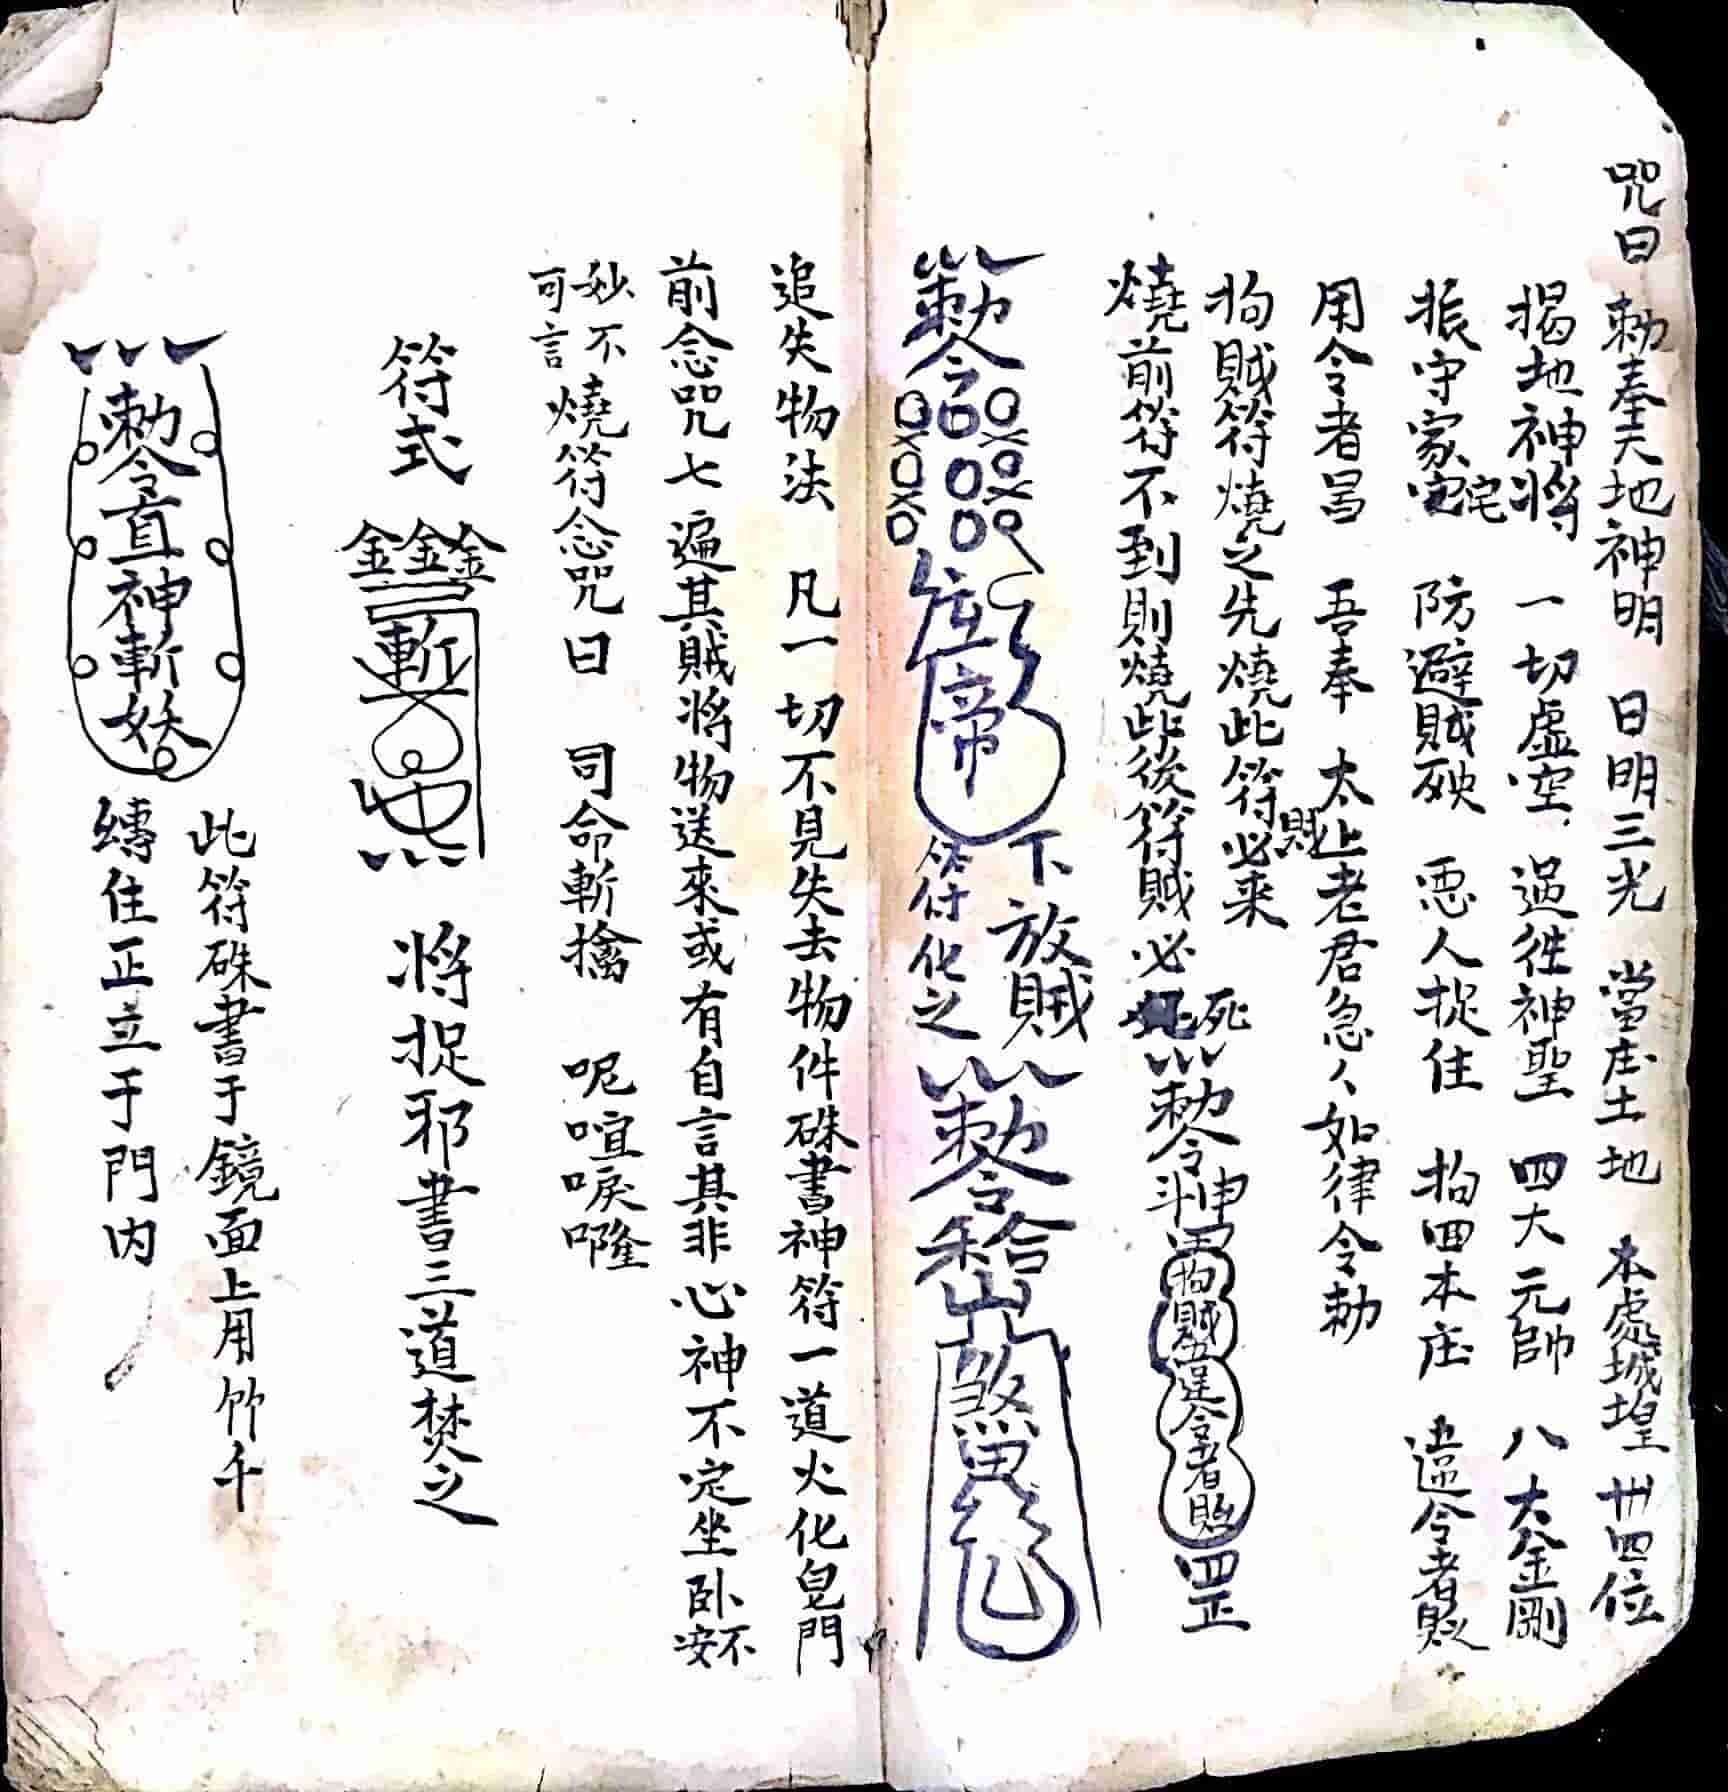 咒曰 勅奉天地神明 日明三光 當庄土地 本處城堭 卅四位
揭地神將 一切虛空 過徃神聖 四大元帥 八大金剛
振守家宅 防避賊殃 惡人捉住 拘回本庄 違令者貶
用令者昌 吾奉 太上老君急人如律令勅
拘賊符燒之先燒此符賊必来
燒前符不到則燒此後符賊必死
勅令斗申 拘賊違令者貶 罡
勅令 帝
下放賊
符化之
勅令 煞鬼
追失物法 凡一切不見失去物件硃書神符一道火化皂門
前念咒七遍其賊將物送來或有自言其非心神不定坐卧不安
妙不可言燒符念咒曰 司命斬擒 呢喧唳㘄
符式 金金金 斬 將捉邪書三道焚之
勅令直神斬妖
此符硃書于鏡面上用竹千
縳住正立于門内